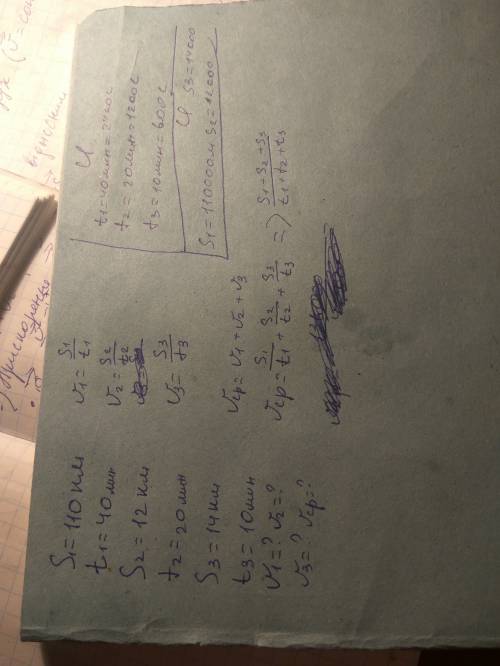 S1=110 км
t1=40 мин
S2=12 км
t2=20 мин
S3=14 км
t3=10 мин
v1=? v2=?
v3=? vср=?
v1=S1/t1
v2=S2/t2
v3=S3/t3
vср=v1+v2+v3
vср=S1/t1+S2/t2+S3/t3 => S1-S2+S3/t1+t2+t3
СИ
t1=40мин=2400с
t2=20мин=1200с
t3=10мин=600с
СИ S3=14000
S1=110000м S2=12000